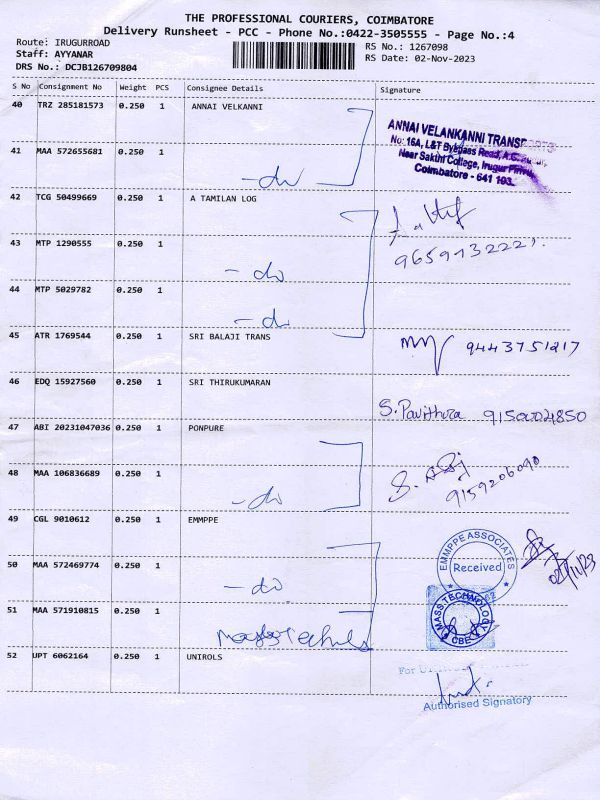 THE PROFESSIONAL COURIERS, COIMBATORE
Delivery Runsheet - PCC - Phone No.:0422-3505555 - Page No.:4
Route: IRUGURROAD
Staff: AYYANAR
DRS No.: DCJB126709804
RS No.: 1267098
RS Date: 02-Nov-2023
S No Consignment No Weight PCS Consignee Details Signature
40 TRZ 285181573 0.250 1 ANNAI VELKANNI
ANNAI VELANKANNI TRANSPORTS
No: 16A, L&T Byepass Road,
Near Sakthi College, Irugur
Coimbatore - 641 103.
41 MAA 572655681 0.250 1
- do
42 TCG 50499669 0.250 1 A TAMILAN LOG
9659132221
43 MTP 1290555 0.250 1
- do
44 MTP 5029782 0.250 1
- do
45 ATR 1769544 0.250 1 SRI BALAJI TRANS
9443751217
46 EDQ 15927560 0.250 1 SRI THIRUKUMARAN
S. Pavithra 9150004850
47 ABI 20231047036 0.250 1 PONPURE
9159206090
48 MAA 106836689 0.250 1
- do
49 CGL 9010612 0.250 1 EMMPPE
EMMPPE ASSOCIATES
Received
02/11/23
50 MAA 572469774 0.250 1
- do
51 MAA 571910815 0.250 1
MASS TECHNOLOGY
CBE
52 UPT 6062164 0.250 1 UNIROLS
For
Authorised Signatory